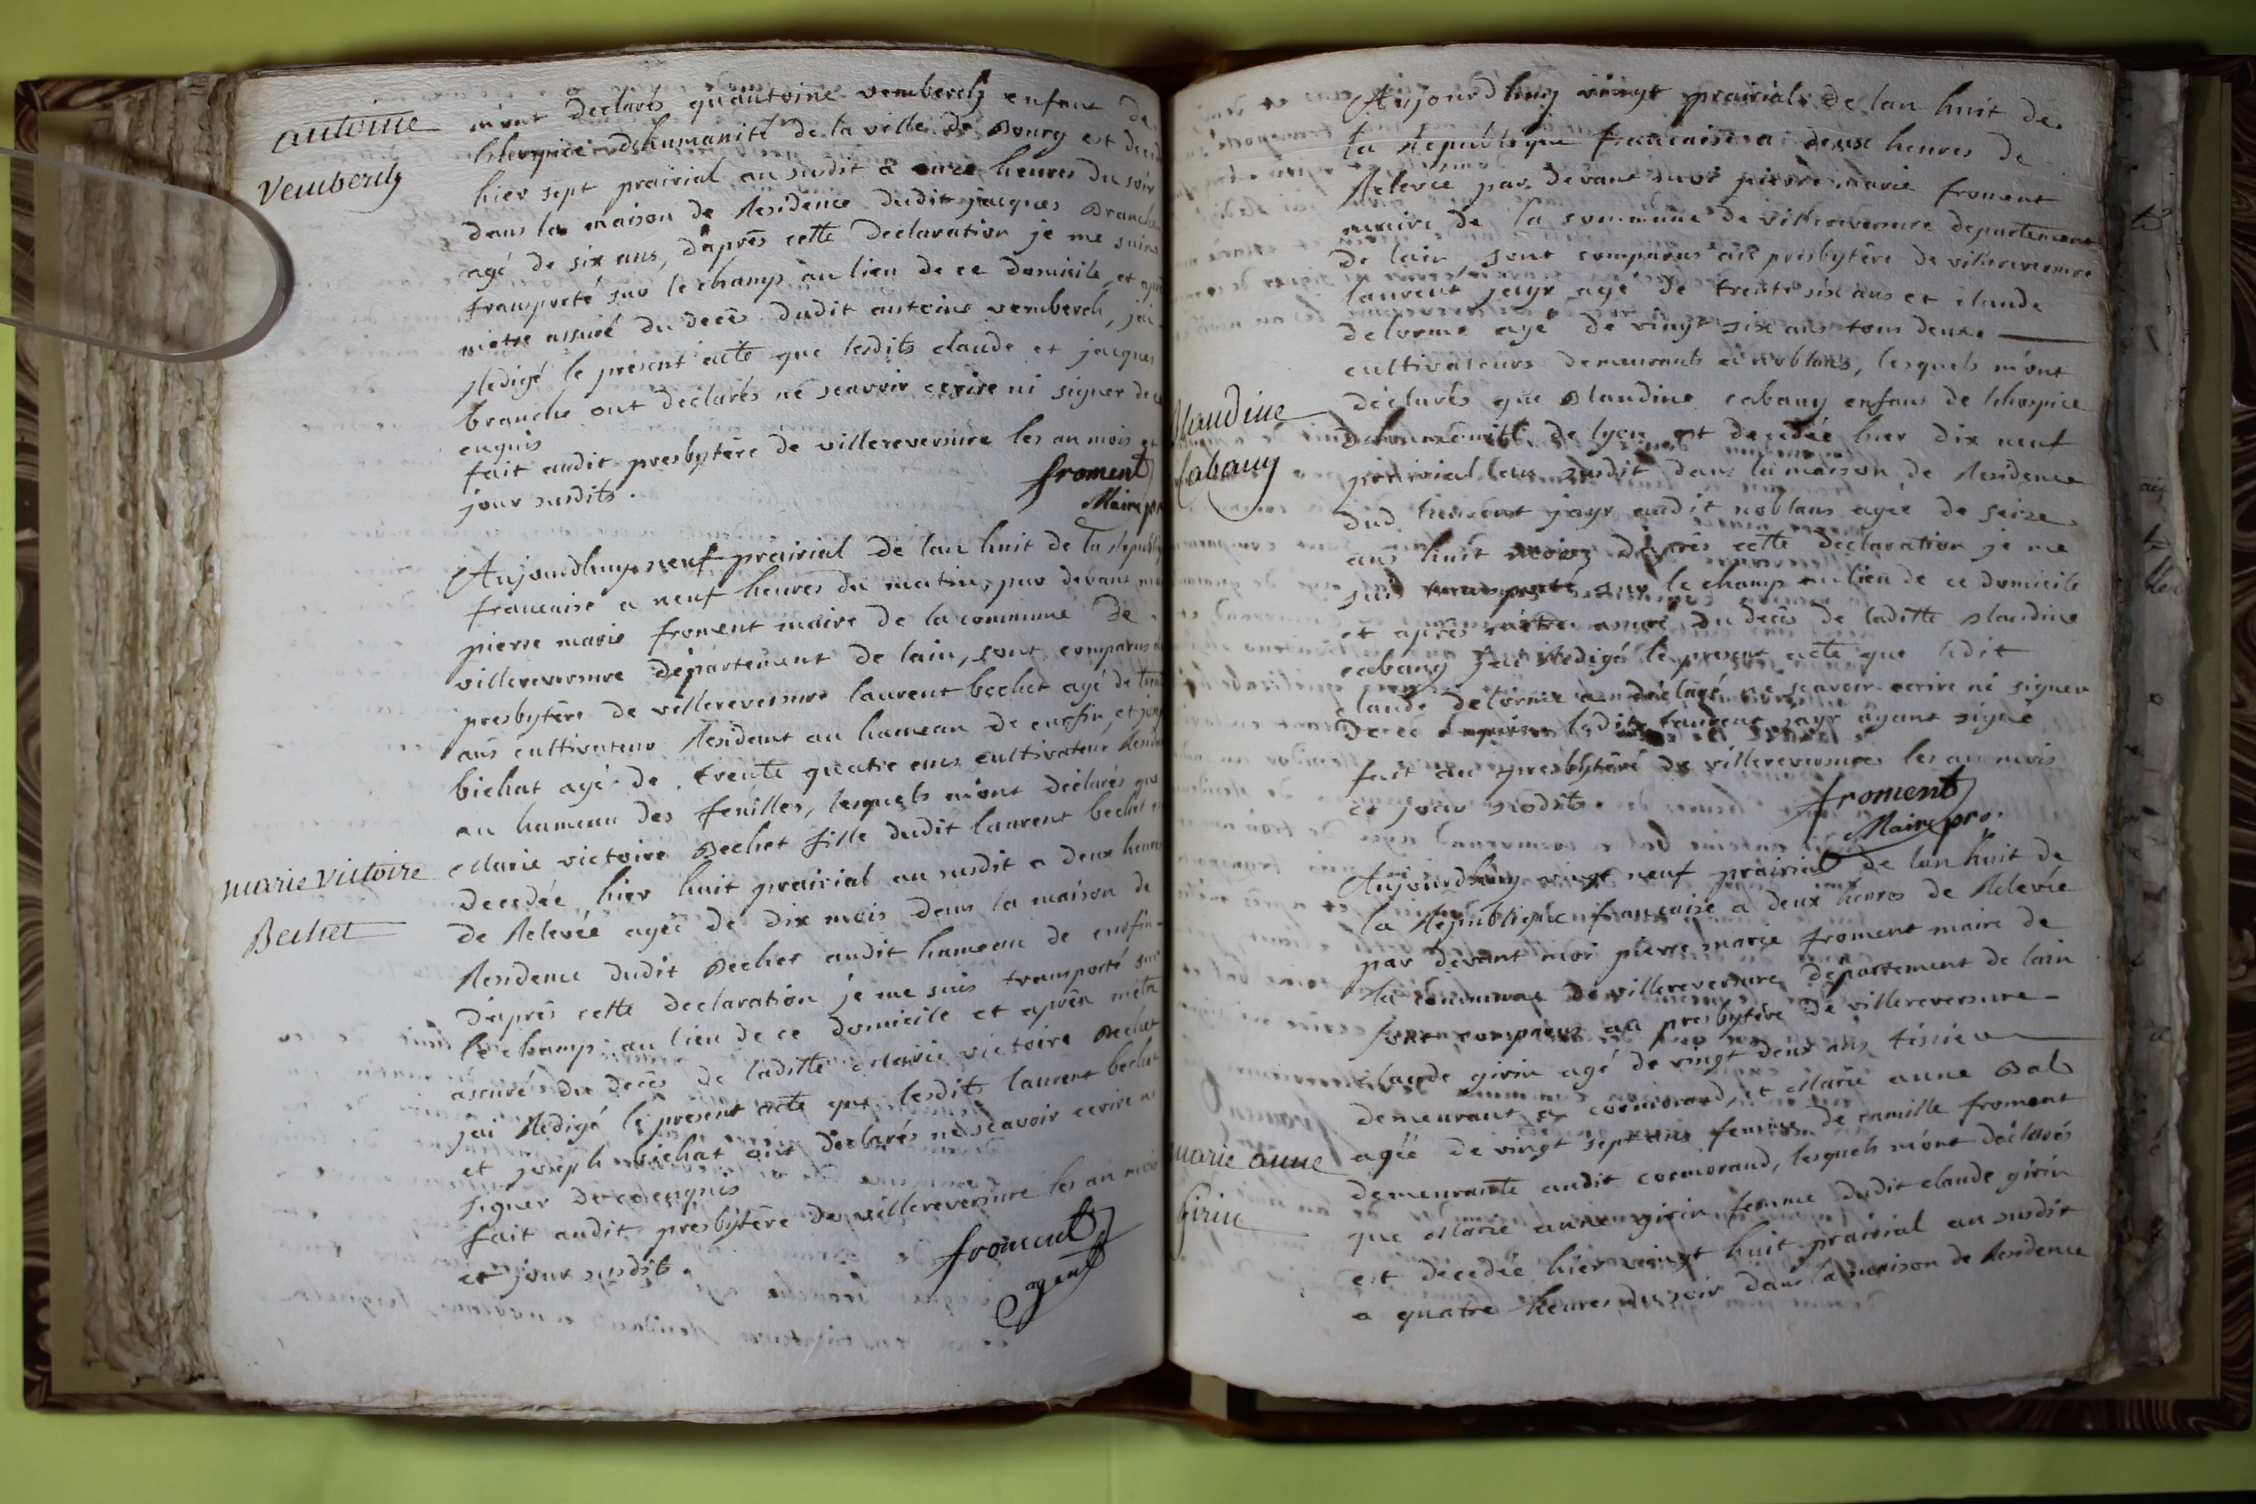 antoine
vemberch
m'ont declarés qu'antoine vemberch enfant de
l'hospice d'humanité de la ville de Bourg est
hier sept prairial an susdit a onze heures du soir
dans la maison de Residence dudit jacques Branche
agé de six ans, d'après cette declaration je me suis
transporté sur le champ au lieu de ce domicile, et
m'etre assuré du decès dudit antoine vemberch, j'ai
Redigé le present acte que lesdits claude et jacques
branche ont declarés ne scavoir ecrire ni signer de ce
enquis
fait audit presbytère de villereversure les an mois et
jour susdits.
froment
Maire
Aujourdhuy neuf prairial de lan huit de la
francaise a neuf heures du matin, par devant
pierre marie froment maire de la commune de
villereversure département de lain, sont comparus
presbytère de villereversure laurent bechet agé de
ans cultivateur Residant au hameau de enofin, et
bichat agé de trente quatre ans cultivateur
au hameau des feuilles, lesquels m'ont declarés que
marie victoire
Bechet
Marie victoire Bechet fille dudit laurent bechet
decedée hier huit prairial an susdit a deux heures
de Relevée agée de dix mois dans la maison de
Residence dudit Bechet audit hameau de enofin
d'après cette declaration je me suis transporté sur
le champ au lieu de ce domicile et après m'etre
assuré du decès de laditte Marie victoire Bechet
j'ai Redigé le present acte que lesdits laurent bechet
et joseph bichat ont declarés ne scavoir ecrire ni
signer de ce enquis
fait audit presbytère de villereversure les an mois
et jour susdits.
froment
agent
Aujourdhuy vingt prairial de lan huit de
la Republique francaise a deux heures de
Relevée par devant moi pierre marie froment
maire de la commune de villereversure departement
de lain sont comparus au presbytère de villereversure
laurent jayr agé de trente six ans et claude
delorme agé de vingt six ans tous deux
cultivateurs demeurants a noblans, lesquels m'ont
Blandine
Cabany
déclarés que Blandine cabany enfant de l'hospice
d'humanité de lyon est decedée hier dix neuf
prairial lan susdit dans la maison de Residence
dud. laurent jayr audit noblans agée de seize
ans huit mois, d'après cette declaration je me
suis transporté sur le champ au lieu de ce domicile
et après m'etre assuré du decès de laditte Blandine
cabany j'ai Redigé le present acte que ledit
claude delorme a declaré ne scavoir ecrire ni signer
de ce enquis ledit laurent jayr ayant signé
fait au presbytère de villereversure les an mois
et jour susdits.
froment
Maire pro.
Aujourdhuy vingt neuf prairial de lan huit de
la Republique francaise a deux heures de Relevée
par devant moi pierre marie froment maire de
la commune de villereversure département de lain
sont comparus au presbytère de villereversure
claude girin agé de vingt deux ans tissier
demeurant a cormorand, et Marie anne Bal
agée de vingt sept ans femme de camille froment
demeurante audit cormorand, lesquels m'ont déclarés
marie anne
Girin
que Marie anne girin femme dudit claude girin
est decedée hier vingt huit prairial an susdit
a quatre heures du soir dans la maison de Residence